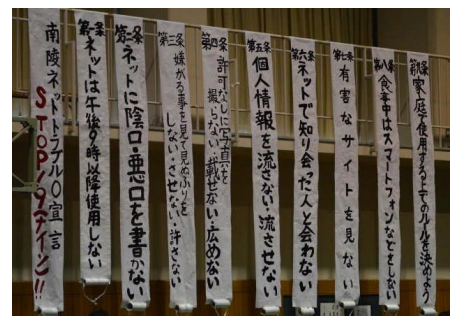 南陵ネットトラブル0宣言
STOP!9(ナイン)!!
第一条 ネットは午後9時以降使用しない
第二条 ネットに陰口・悪口を書かない
第三条 嫌がる事を見て見ぬふりを
しない・させない・許さない
第四条 許可なしに写真を
撮らない・載せない・広めない
第五条 個人情報を流さない・流させない
第六条 ネットで知り合った人と会わない
第七条 有害なサイトを見ない
第八条 食事中はスマートフォンなどをしない
第九条 家庭で使用する上でのルールを決めよう